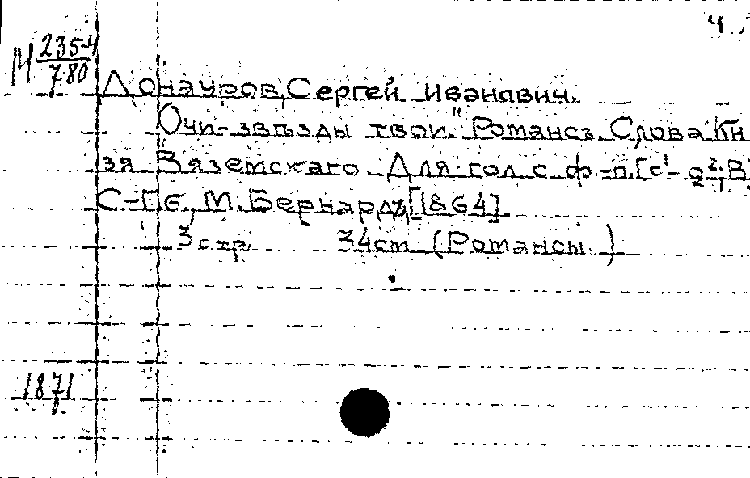 М 235-4
780
Донауров, Сергей Иванович.
"Очи-звѣзды твои." Романсъ. Слова Кн
зя Вяземскаго. Для гол. с ф-п. [c¹-g²; B]
С-Пб., М. Бернардъ, [1864].
3 стр. 34 см (Романсы.)
1871